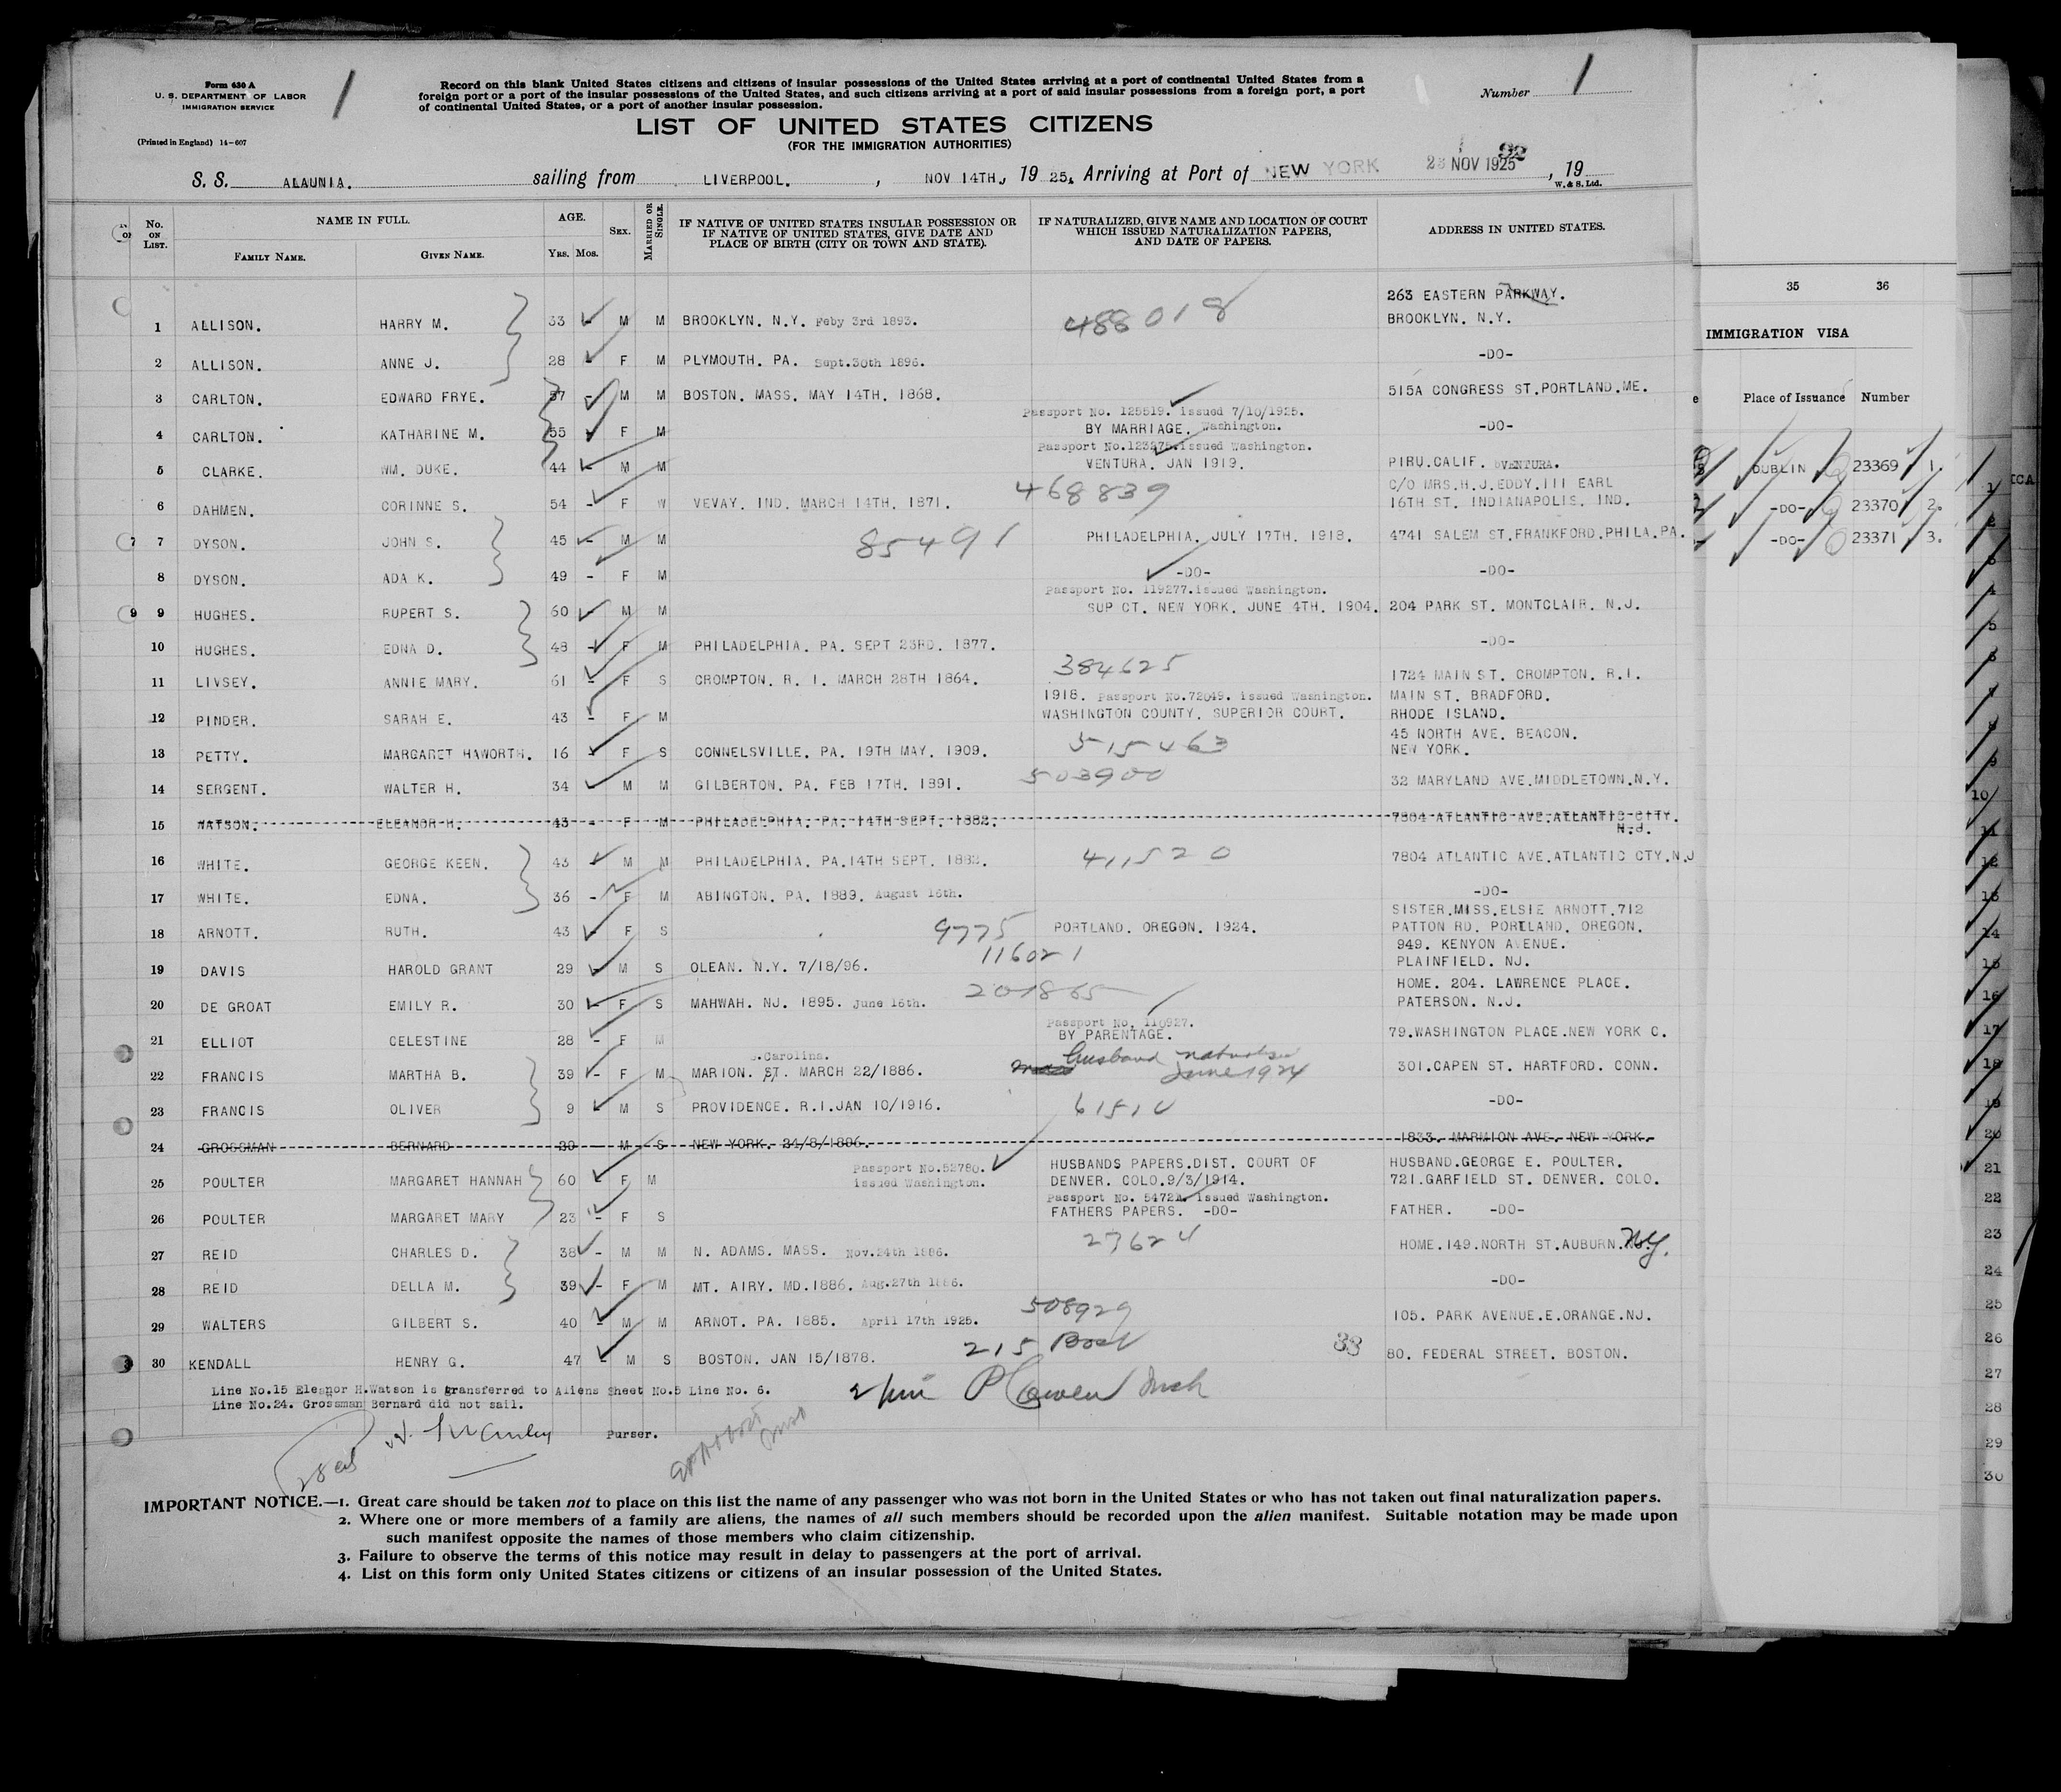 Form 630 A
U. S. DEPARTMENT OF LABOR
IMMIGRATION SERVICE
(Printed in England) 14-607
1
Record on this blank United States citizens and citizens of insular possessions of the United States arriving at a port of continental United States from a
foreign port or a port of the insular possessions of the United States, and such citizens arriving at a port of said insular possessions from a foreign port, a port
of continental United States, or a port of another insular possession.
Number 1
LIST OF UNITED STATES CITIZENS
(FOR THE IMMIGRATION AUTHORITIES)
S. S. ALAUNIA. sailing from LIVERPOOL. , NOV 14TH, 19 25, Arriving at Port of NEW YORK 23 NOV 1925 , 19
92
W. & S. Ltd.
No. ON LIST. NAME IN FULL. AGE. SEX. MARRIED OR SINGLE. IF NATIVE OF UNITED STATES INSULAR POSSESSION OR IF NATIVE OF UNITED STATES, GIVE DATE AND PLACE OF BIRTH (CITY OR TOWN AND STATE). IF NATURALIZED, GIVE NAME AND LOCATION OF COURT WHICH ISSUED NATURALIZATION PAPERS, AND DATE OF PAPERS. ADDRESS IN UNITED STATES.
FAMILY NAME. GIVEN NAME. Yrs. Mos.
263 EASTERN PARKWAY.
1 ALLISON. HARRY M. 33 - M M BROOKLYN. N.Y. Feby 3rd 1893. 488018 BROOKLYN. N.Y.
2 ALLISON. ANNE J. 28 - F M PLYMOUTH. PA. Sept.30th 1896. -DO-
3 CARLTON. EDWARD FRYE. 57 - M M BOSTON. MASS. MAY 14TH. 1868. 515A CONGRESS ST.PORTLAND.ME.
Passport No. 125519. issued 7/10/1925.
4 CARLTON. KATHARINE M. 55 - F M BY MARRIAGE. Washington. -DO-
Passport No.123275.issued Washington.
5 CLARKE. WM. DUKE. 44 - M M VENTURA. JAN 1919. PIRU.CALIF. VENTURA.
468839 C/O MRS.H.J.EDDY.111 EARL
6 DAHMEN. CORINNE S. 54 - F W VEVAY. IND. MARCH 14TH. 1871. 16TH ST. INDIANAPOLIS. IND.
7 7 DYSON. JOHN S. 45 - M M 85491 PHILADELPHIA. JULY 17TH. 1918. 4741 SALEM ST.FRANKFORD.PHILA.PA.
8 DYSON. ADA K. 49 - F M -DO- -DO-
Passport No. 119277.issued Washington.
9 9 HUGHES. RUPERT S. 60 - M M SUP CT. NEW YORK. JUNE 4TH. 1904. 204 PARK ST. MONTCLAIR. N.J.
10 HUGHES. EDNA D. 48 - F M PHILADELPHIA. PA. SEPT 23RD. 1877. -DO-
11 LIVSEY. ANNIE MARY. 61 - F S CROMPTON. R. I. MARCH 28TH 1864. 384625 1724 MAIN ST. CROMPTON. R.I.
1918. Passport No.72049. issued Washington. MAIN ST. BRADFORD.
12 PINDER. SARAH E. 43 - F M WASHINGTON COUNTY. SUPERIOR COURT. RHODE ISLAND.
45 NORTH AVE. BEACON.
13 PETTY. MARGARET HAWORTH. 16 - F S CONNELSVILLE. PA. 19TH MAY. 1909. 515463 NEW YORK.
14 SERGENT. WALTER H. 34 - M M GILBERTON. PA. FEB 17TH. 1891. 503900 32 MARYLAND AVE.MIDDLETOWN.N.Y.
15 WATSON. ELEANOR H. 43 - F M PHILADELPHIA. PA. 14TH SEPT. 1882. 7804 ATLANTIC AVE.ATLANTIC CITY.
N.J.
16 WHITE. GEORGE KEEN. 43 - M M PHILADELPHIA. PA.14TH SEPT. 1882. 411520 7804 ATLANTIC AVE.ATLANTIC CTY.N.J
17 WHITE. EDNA. 36 - F M ABINGTON. PA. 1889. August 16th. -DO-
SISTER.MISS.ELSIE ARNOTT.712
18 ARNOTT. RUTH. 43 - F S 9775 PORTLAND. OREGON. 1924. PATTON RD. PORTLAND. OREGON.
949. KENYON AVENUE.
19 DAVIS HAROLD GRANT 29 - M S OLEAN. N.Y. 7/18/96. 116021 PLAINFIELD. NJ.
HOME. 204. LAWRENCE PLACE.
20 DE GROAT EMILY R. 30 - F S MAHWAH. NJ. 1895. June 16th. 201865 PATERSON. N.J.
Passport No. 110927.
21 ELLIOT CELESTINE 28 - F M BY PARENTAGE. 79.WASHINGTON PLACE.NEW YORK C.
S.Carolina. Husband
22 FRANCIS MARTHA B. 39 - F M MARION. ST. MARCH 22/1886. June 1924 301.CAPEN ST. HARTFORD. CONN.
23 FRANCIS OLIVER 9 M S PROVIDENCE. R.I.JAN 10/1916. -DO-
24 GROSSMAN BERNARD M S NEW YORK. 24/8/1886. 1833. MARMION AVE. NEW YORK.
Passport No.52780. HUSBANDS PAPERS.DIST. COURT OF HUSBAND.GEORGE E. POULTER.
25 POULTER MARGARET HANNAH 60 F M issued Washington. DENVER. COLO.9/3/1914. 721.GARFIELD ST. DENVER. COLO.
Passport No. 54721. issued Washington.
26 POULTER MARGARET MARY 23 - F S FATHERS PAPERS. -DO- FATHER. -DO-
27 REID CHARLES D. 38 - M M N. ADAMS. MASS. Nov.24th 1886. HOME.149.NORTH ST.AUBURN. NY.
28 REID DELLA M. 39 - F M MT. AIRY. MD.1886. Aug.27th 1886. -DO-
29 WALTERS GILBERT S. 40 - M M ARNOT. PA. 1885. April 17th 1925. 508929 105. PARK AVENUE.E.ORANGE.NJ.
30 KENDALL HENRY G. 47 - M S BOSTON. JAN 15/1878. 215 33 80. FEDERAL STREET. BOSTON.
Line No.15 Eleanor H.Watson is transferred to Aliens Sheet No.5 Line No. 6.
Line No.24. Grossman Bernard did not sail.
Purser.
IMPORTANT NOTICE.—1. Great care should be taken not to place on this list the name of any passenger who was not born in the United States or who has not taken out final naturalization papers.
2. Where one or more members of a family are aliens, the names of all such members should be recorded upon the alien manifest. Suitable notation may be made upon
such manifest opposite the names of those members who claim citizenship.
3. Failure to observe the terms of this notice may result in delay to passengers at the port of arrival.
4. List on this form only United States citizens or citizens of an insular possession of the United States.
35 36
IMMIGRATION VISA
Place of Issuance Number
DUBLIN 23369 1.
-DO- 23370 2.
-DO- 23371 3.
1
2
3
4
5
6
7
8
9
10
11
12
13
14
15
16
17
18
19
20
21
22
23
24
25
26
27
28
29
30